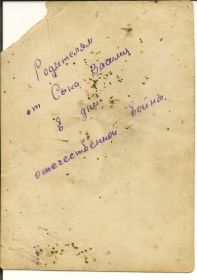 Родителям
от Сына Василия
в дни
отечественной войны.